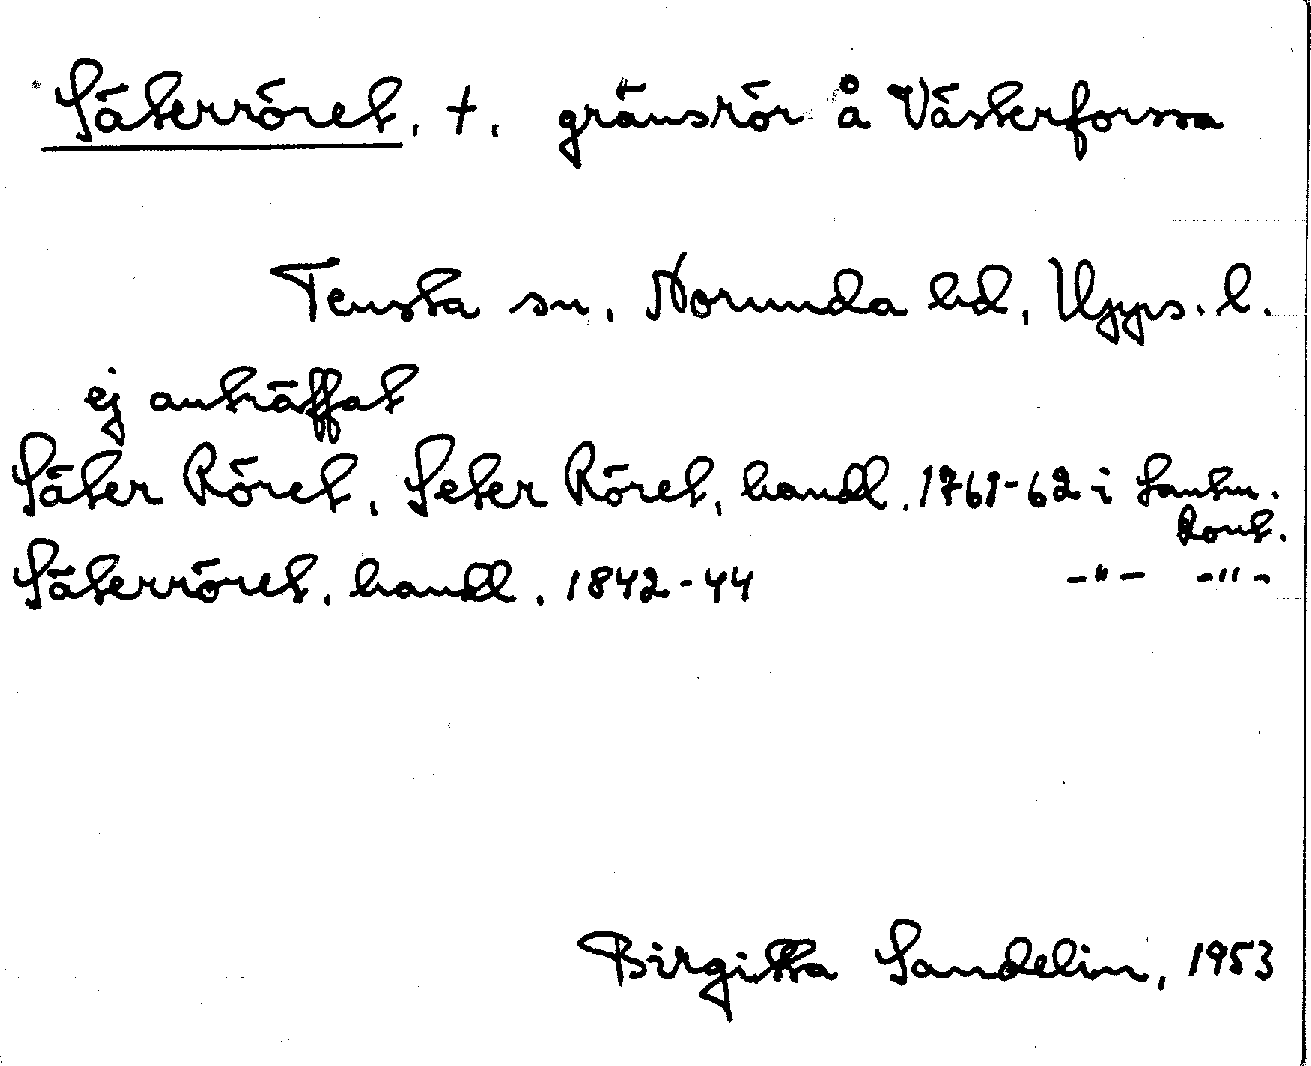 Säterröret, †, gränsrör å Västerforssa
Tensta sn, Norunda hd, Upps. l.
ej anträffat
Säter Röret, Seter Röret, handl. 1761-62 i Lantm.
Kont.
Säterröret, handl. 1842-44 -"- -"-
Birgitta Sandelin, 1953